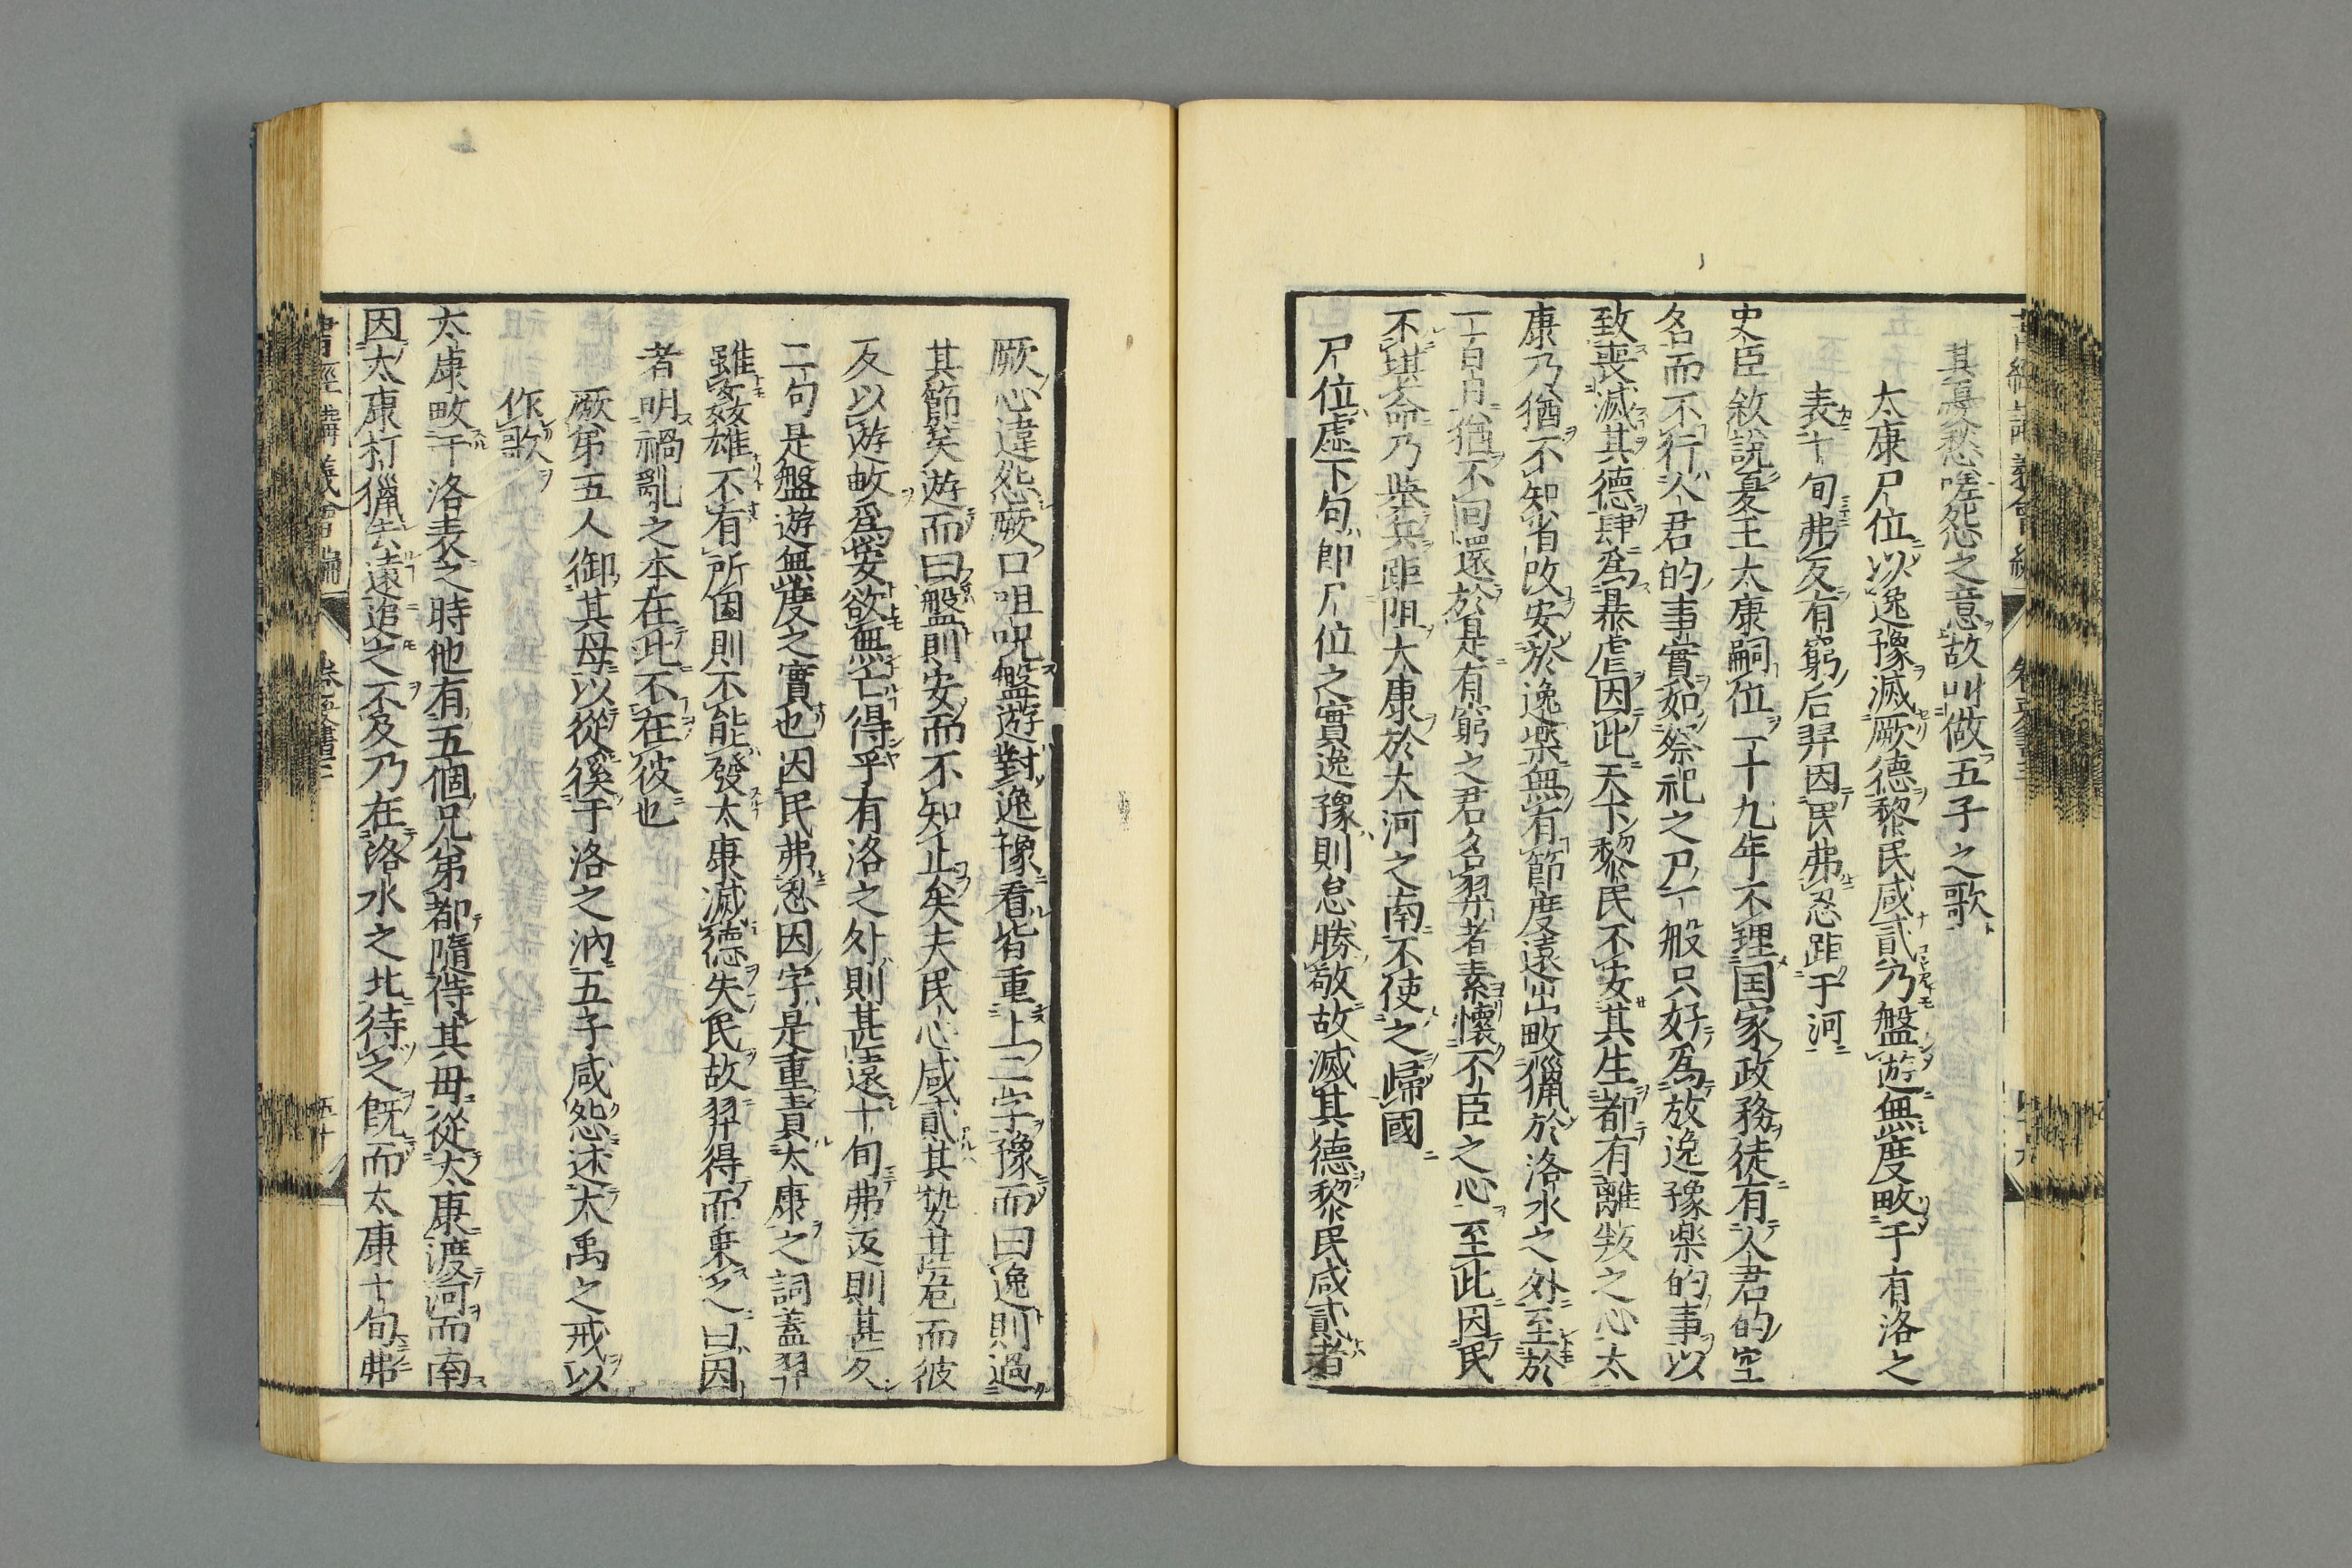 其憂愁嗟怨之意故叫做五子之歌
太康尸位以逸豫滅厥德黎民咸貳乃盤遊無度畋于有洛之
表十旬弗反有窮后羿因民弗忍距于河
史臣敘說夏王太康嗣位一十九年不理国家政務徒有人君的空
名而不行人君的事實如祭祀之尸一般只好爲放逸豫樂的事以
致喪滅其德肆爲暴虐因此天下黎民不安其生都有離叛之心太
康乃猶不知省改安於逸楽無有節度遠出畋獵於洛水之外至於
一百日猶不回還於是有窮之君名羿者素懷不臣之心至此因民
不堪命乃举兵距阻太康於大河之南不使之歸國
尸位虛下句即尸位之實逸豫則怠勝敬故滅其德黎民咸貳者
厥心違怨厥口咀呪盤遊對逸豫看皆重上二字豫而曰逸則過
其節矣遊而曰盤則安而不知止矣夫民心咸貳其勢甚危而彼
反以遊畋爲安欲無亡得乎有洛之外則甚遠十旬弗返則甚久
二句是盤遊無度之實也因民弗忍因字是重責太康之詞蓋羿
雖姦雄不有所因則不能發太康滅德失民故羿得而乗之曰因
者明禍亂之本在此不在彼也
厥弟五人御其母以從徯于洛之汭五子咸怨述大禹之戒以
作歌
太康畋于洛表之時他有五個兄弟都隨侍其母從太康渡河而南
因太康打獵去遠追之不及乃在洛水之北待之既而太康十旬弗
書經講義會編
五十